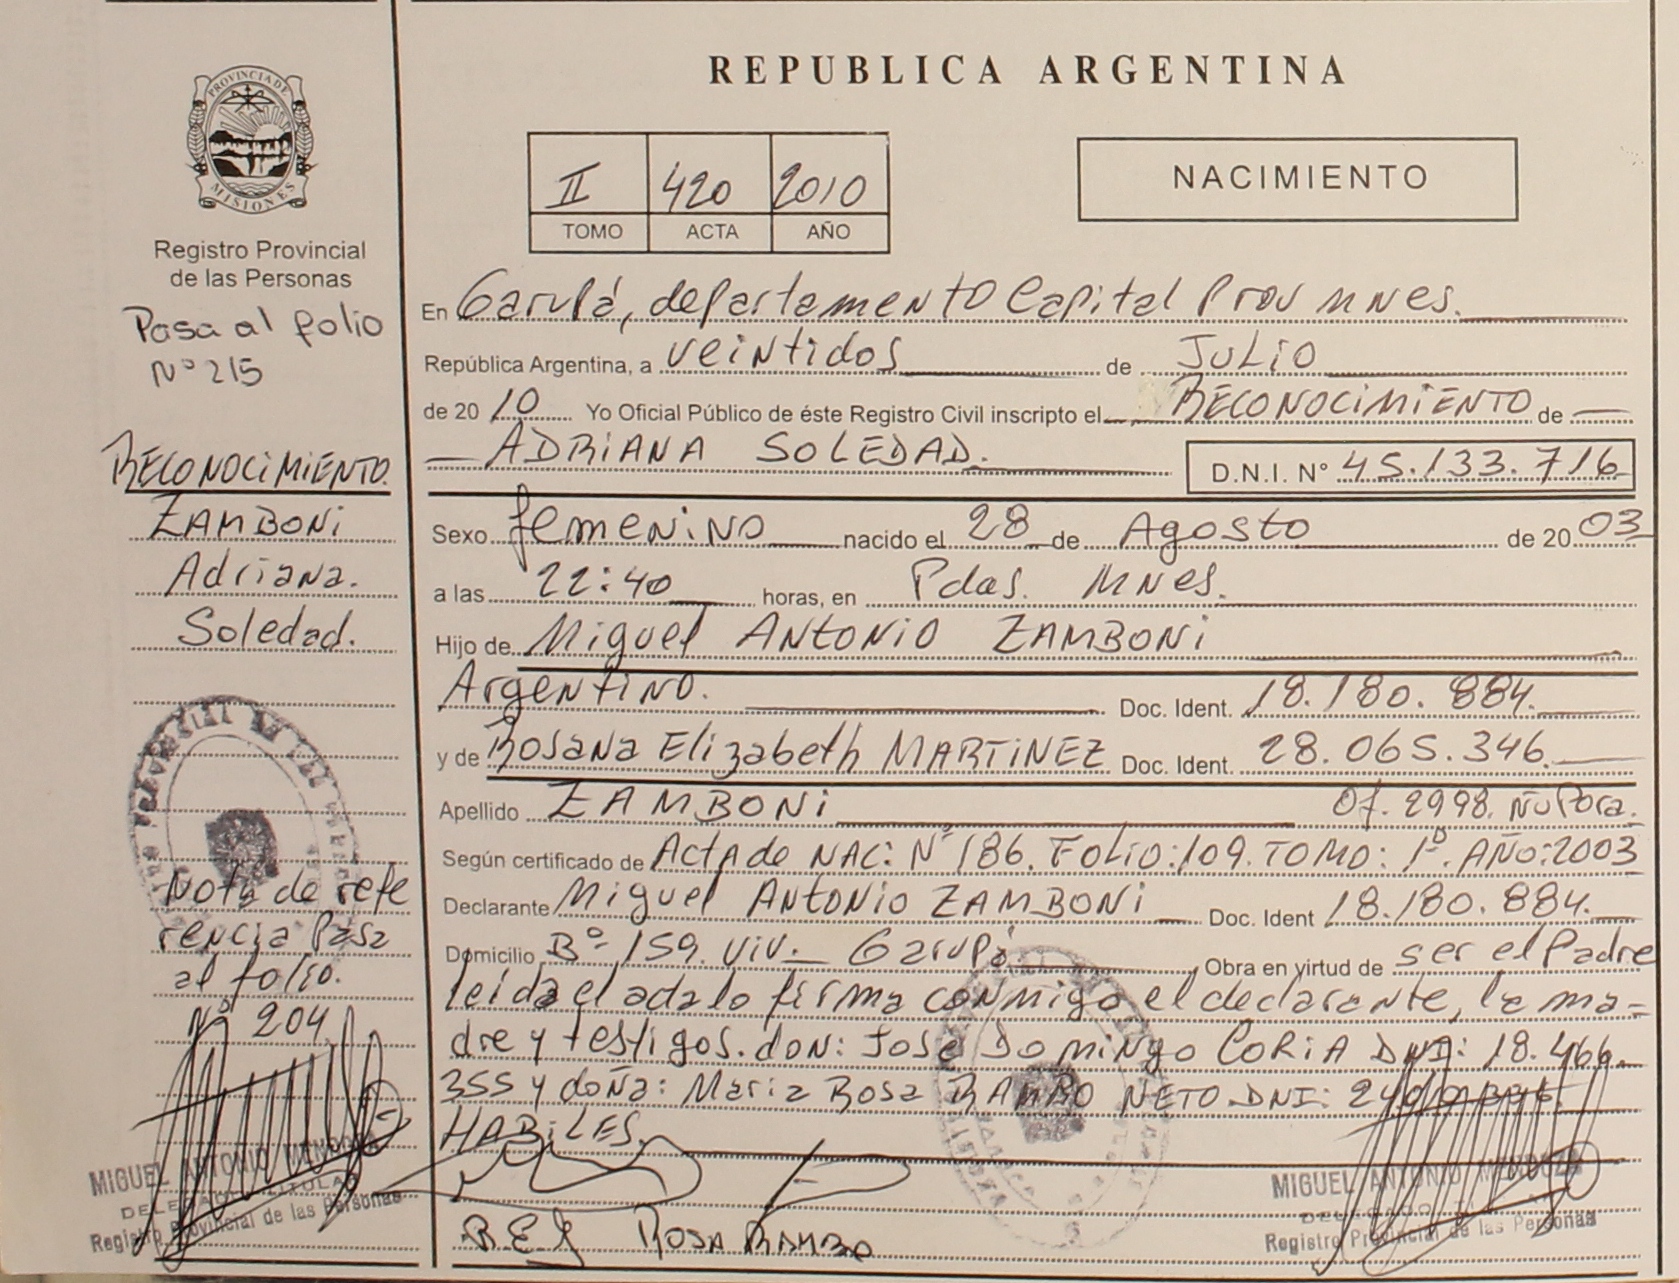 PROVINCIA DE
MISIONES
Registro Provincial
de las Personas
Pasa al folio
Nº 215
RECONOCIMIENTO
ZAMBONI
Adriana.
Soledad.
Nota de refe
rencia Pasa
al folio.
Nº 204
MIGUEL ANTONIO MENDOZA
DELEGADO TITULAR
Registro Provincial de las Personas
REPUBLICA ARGENTINA
II 420 2010
TOMO ACTA AÑO
NACIMIENTO
En Garupá, departamento Capital Prov Mnes.
República Argentina, a veintidos de JULIO
de 20 10 Yo Oficial Público de éste Registro Civil inscripto el RECONOCIMIENTO de
ADRIANA SOLEDAD. D.N.I. Nº 45.133.716
Sexo femenino nacido el 28 de Agosto de 20 03
a las 22:40 horas, en Pdas. Mnes.
Hijo de Miguel Antonio ZAMBONI
Argentino. Doc. Ident. 18.180.884.
y de Rosana Elizabeth MARTINEZ Doc. Ident. 28.065.346.
Apellido ZAMBONI Of. 2998. Ñu Pora.
Según certificado de Acta de NAC: Nº 186. FOLIO: 109. TOMO: 1º. AÑO: 2003
Declarante Miguel Antonio ZAMBONI Doc. Ident 18.180.884.
Domicilio Bº 159. viv. Garupá Obra en virtud de ser el Padre
leida el acta lo firma conmigo el declarante, la ma-
dre y testigos. don: José Domingo CORIA DNI: 18.466.
355 y doña: Maria Rosa RAMBO NETO DNI:
HABILES.
R.E.G ROSA RAMBO
MIGUEL ANTONIO MENDOZA
DELEGADO
Registro Provincial de las Personas